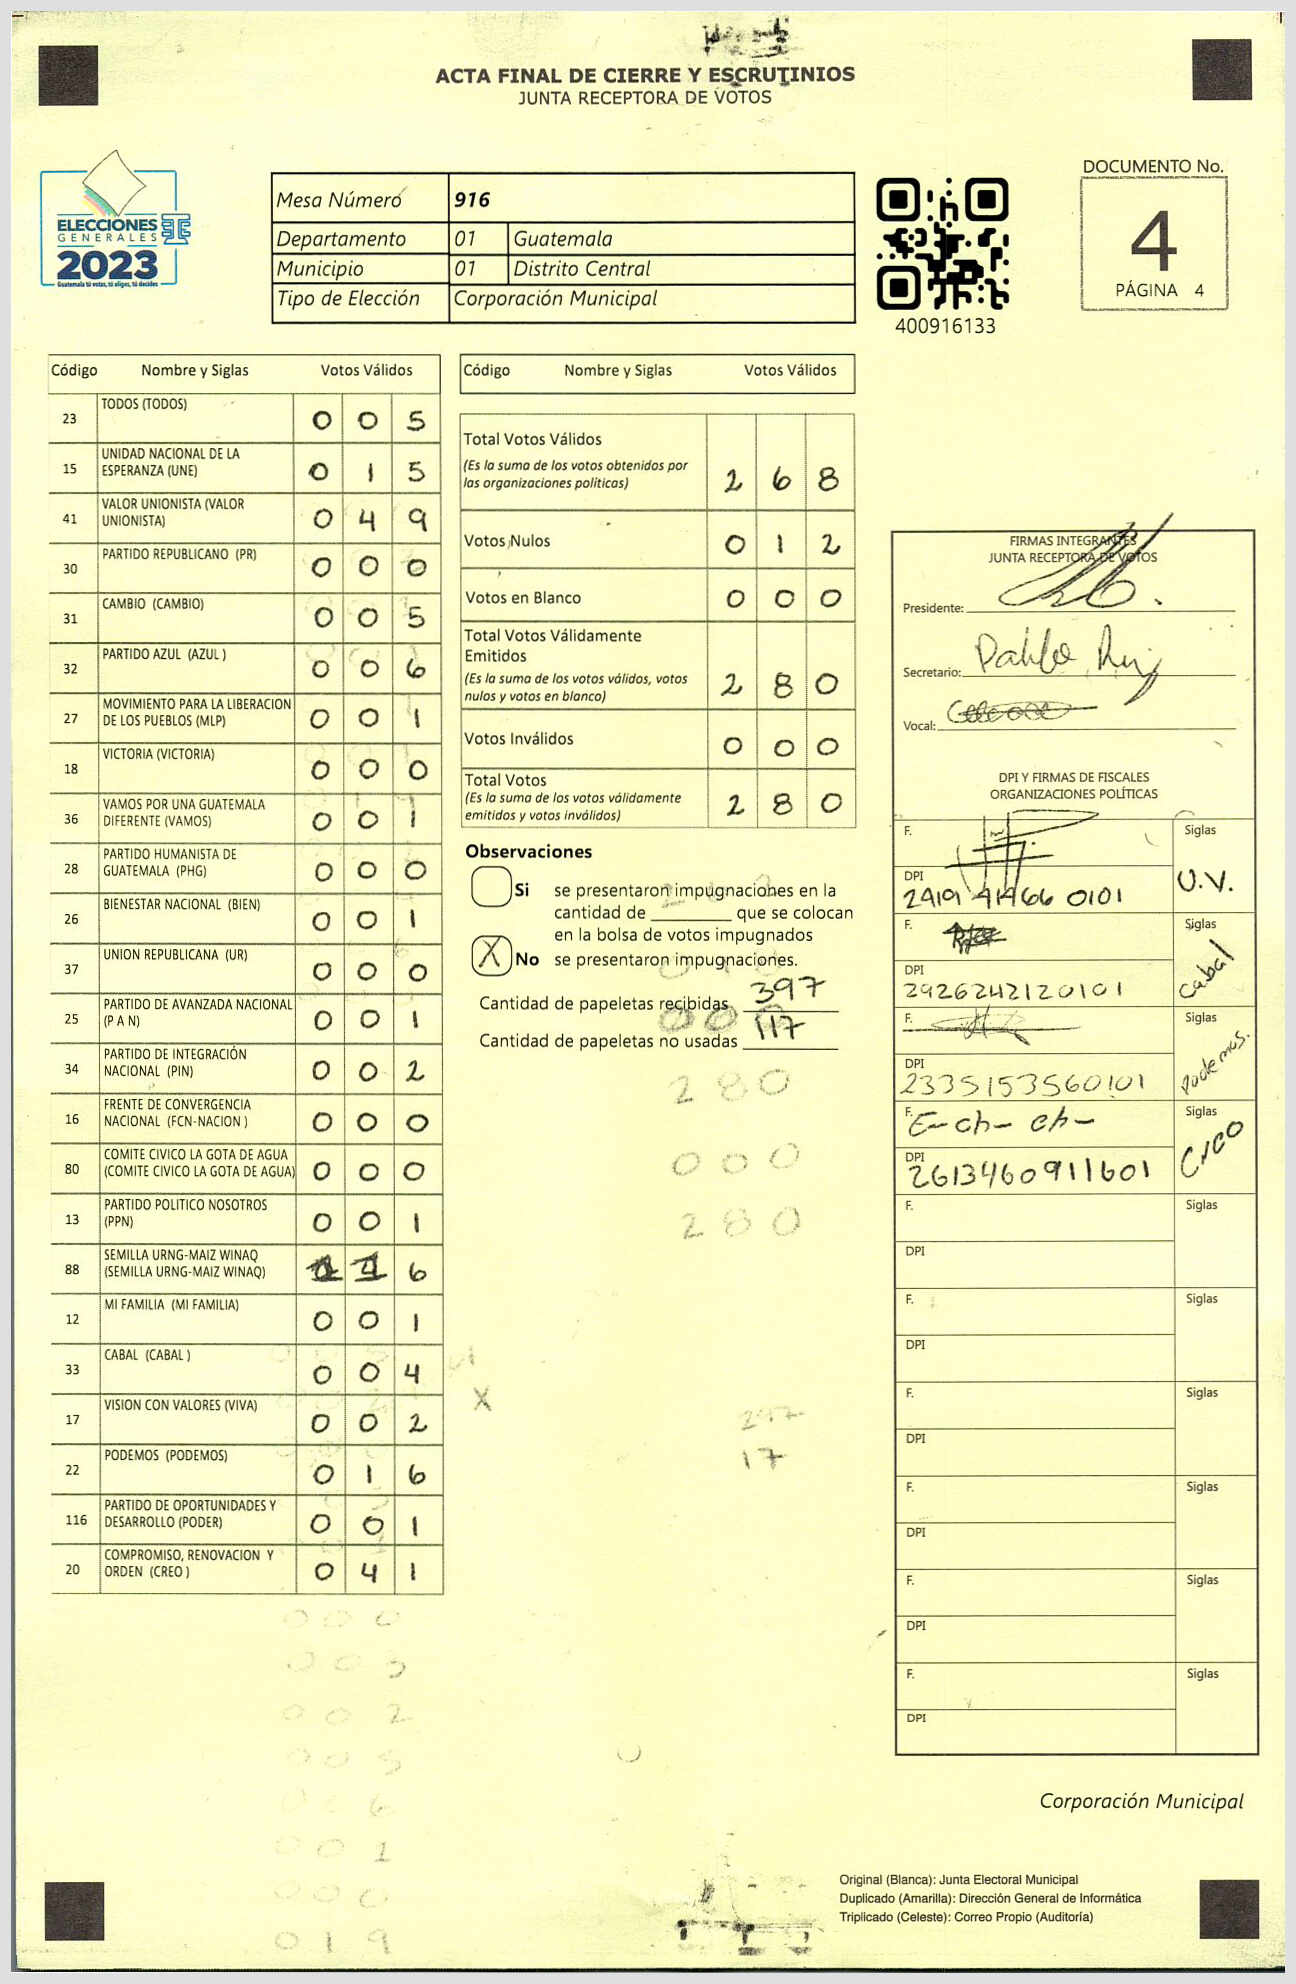 ACTA FINAL DE CIERRE Y ESCRUTINIOS
JUNTA RECEPTORA DE VOTOS
ELECCIONES
GENERALES
2023
Guatemala tú votas, tú eliges, tú decides
Mesa Número 916
Departamento 01 Guatemala
Municipio 01 Distrito Central
Tipo de Elección Corporación Municipal
400916133
DOCUMENTO No.
4
PÁGINA 4
Código Nombre y Siglas Votos Válidos
23 TODOS (TODOS) 0 0 5
15 UNIDAD NACIONAL DE LA ESPERANZA (UNE) 0 1 5
41 VALOR UNIONISTA (VALOR UNIONISTA) 0 4 9
30 PARTIDO REPUBLICANO (PR) 0 0 0
31 CAMBIO (CAMBIO) 0 0 5
32 PARTIDO AZUL (AZUL ) 0 0 6
27 MOVIMIENTO PARA LA LIBERACION DE LOS PUEBLOS (MLP) 0 0 1
18 VICTORIA (VICTORIA) 0 0 0
36 VAMOS POR UNA GUATEMALA DIFERENTE (VAMOS) 0 0 1
28 PARTIDO HUMANISTA DE GUATEMALA (PHG) 0 0 0
26 BIENESTAR NACIONAL (BIEN) 0 0 1
37 UNION REPUBLICANA (UR) 0 0 0
25 PARTIDO DE AVANZADA NACIONAL (P A N) 0 0 1
34 PARTIDO DE INTEGRACIÓN NACIONAL (PIN) 0 0 2
16 FRENTE DE CONVERGENCIA NACIONAL (FCN-NACION ) 0 0 0
80 COMITE CIVICO LA GOTA DE AGUA (COMITE CIVICO LA GOTA DE AGUA) 0 0 0
13 PARTIDO POLITICO NOSOTROS (PPN) 0 0 1
88 SEMILLA URNG-MAIZ WINAQ (SEMILLA URNG-MAIZ WINAQ) 1 1 6
12 MI FAMILIA (MI FAMILIA) 0 0 1
33 CABAL (CABAL ) 0 0 4
17 VISION CON VALORES (VIVA) 0 0 2
22 PODEMOS (PODEMOS) 0 1 6
116 PARTIDO DE OPORTUNIDADES Y DESARROLLO (PODER) 0 0 1
20 COMPROMISO, RENOVACION Y ORDEN (CREO ) 0 4 1
Código Nombre y Siglas Votos Válidos
Total Votos Válidos
(Es la suma de los votos obtenidos por
las organizaciones políticas) 2 6 8
Votos Nulos 0 1 2
Votos en Blanco 0 0 0
Total Votos Válidamente
Emitidos
(Es la suma de los votos válidos, votos
nulos y votos en blanco) 2 8 0
Votos Inválidos 0 0 0
Total Votos
(Es la suma de los votos válidamente
emitidos y votos inválidos) 2 8 0
Observaciones
Si se presentaron impugnaciones en la
cantidad de ________ que se colocan
en la bolsa de votos impugnados
X No se presentaron impugnaciones.
Cantidad de papeletas recibidas 397
Cantidad de papeletas no usadas 117
2 8 0
0 0 0
2 8 0
X
17
FIRMAS INTEGRANTES
JUNTA RECEPTORA DE VOTOS
Presidente:
Secretario: Pablo Ruiz
Vocal:
DPI Y FIRMAS DE FISCALES
ORGANIZACIONES POLÍTICAS
F. Siglas
DPI 2419 41466 0101 U.V.
F. Siglas
DPI 2926242120101 Cabal
F. Siglas
DPI 2335153560101 Podemos.
F. Siglas
DPI 2613460911601 CREO
F. Siglas
DPI
F. Siglas
DPI
F. Siglas
DPI
F. Siglas
DPI
F. Siglas
DPI
F. Siglas
DPI
0 0 0
0 0 2
0 0 5
0 0 6
0 0 1
0 0 0
0 1 9
Corporación Municipal
Original (Blanca): Junta Electoral Municipal
Duplicado (Amarilla): Dirección General de Informática
Triplicado (Celeste): Correo Propio (Auditoría)